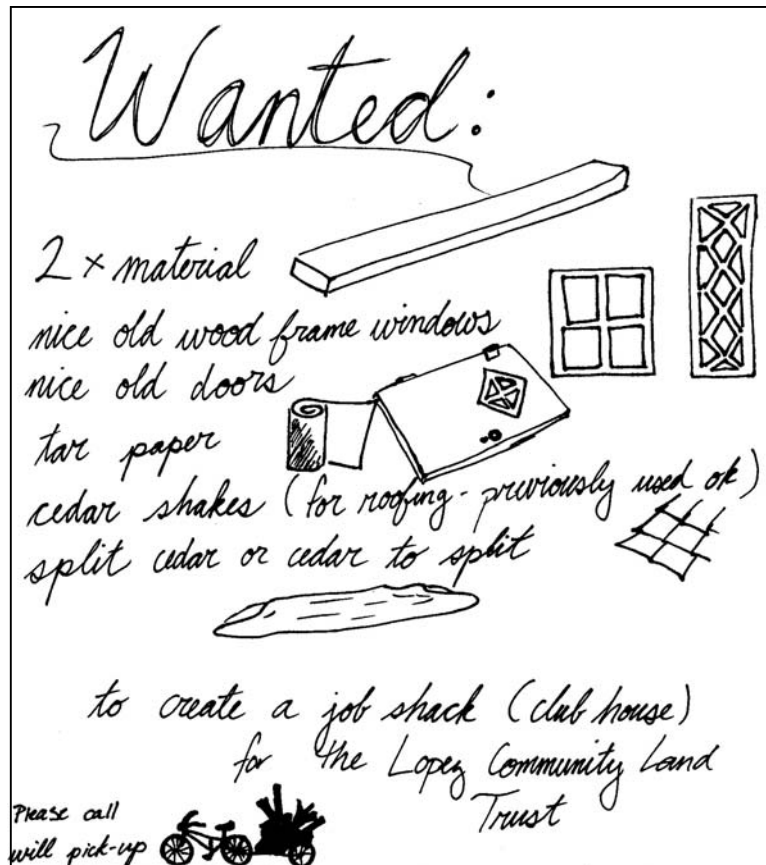 Wanted:
2 x material
nice old wood frame windows
nice old doors
tar paper
cedar shakes (for roofing - previously used ok)
split cedar or cedar to split
to create a job shack (club house)
for the Lopez Community Land
Trust
Please call
will pick-up